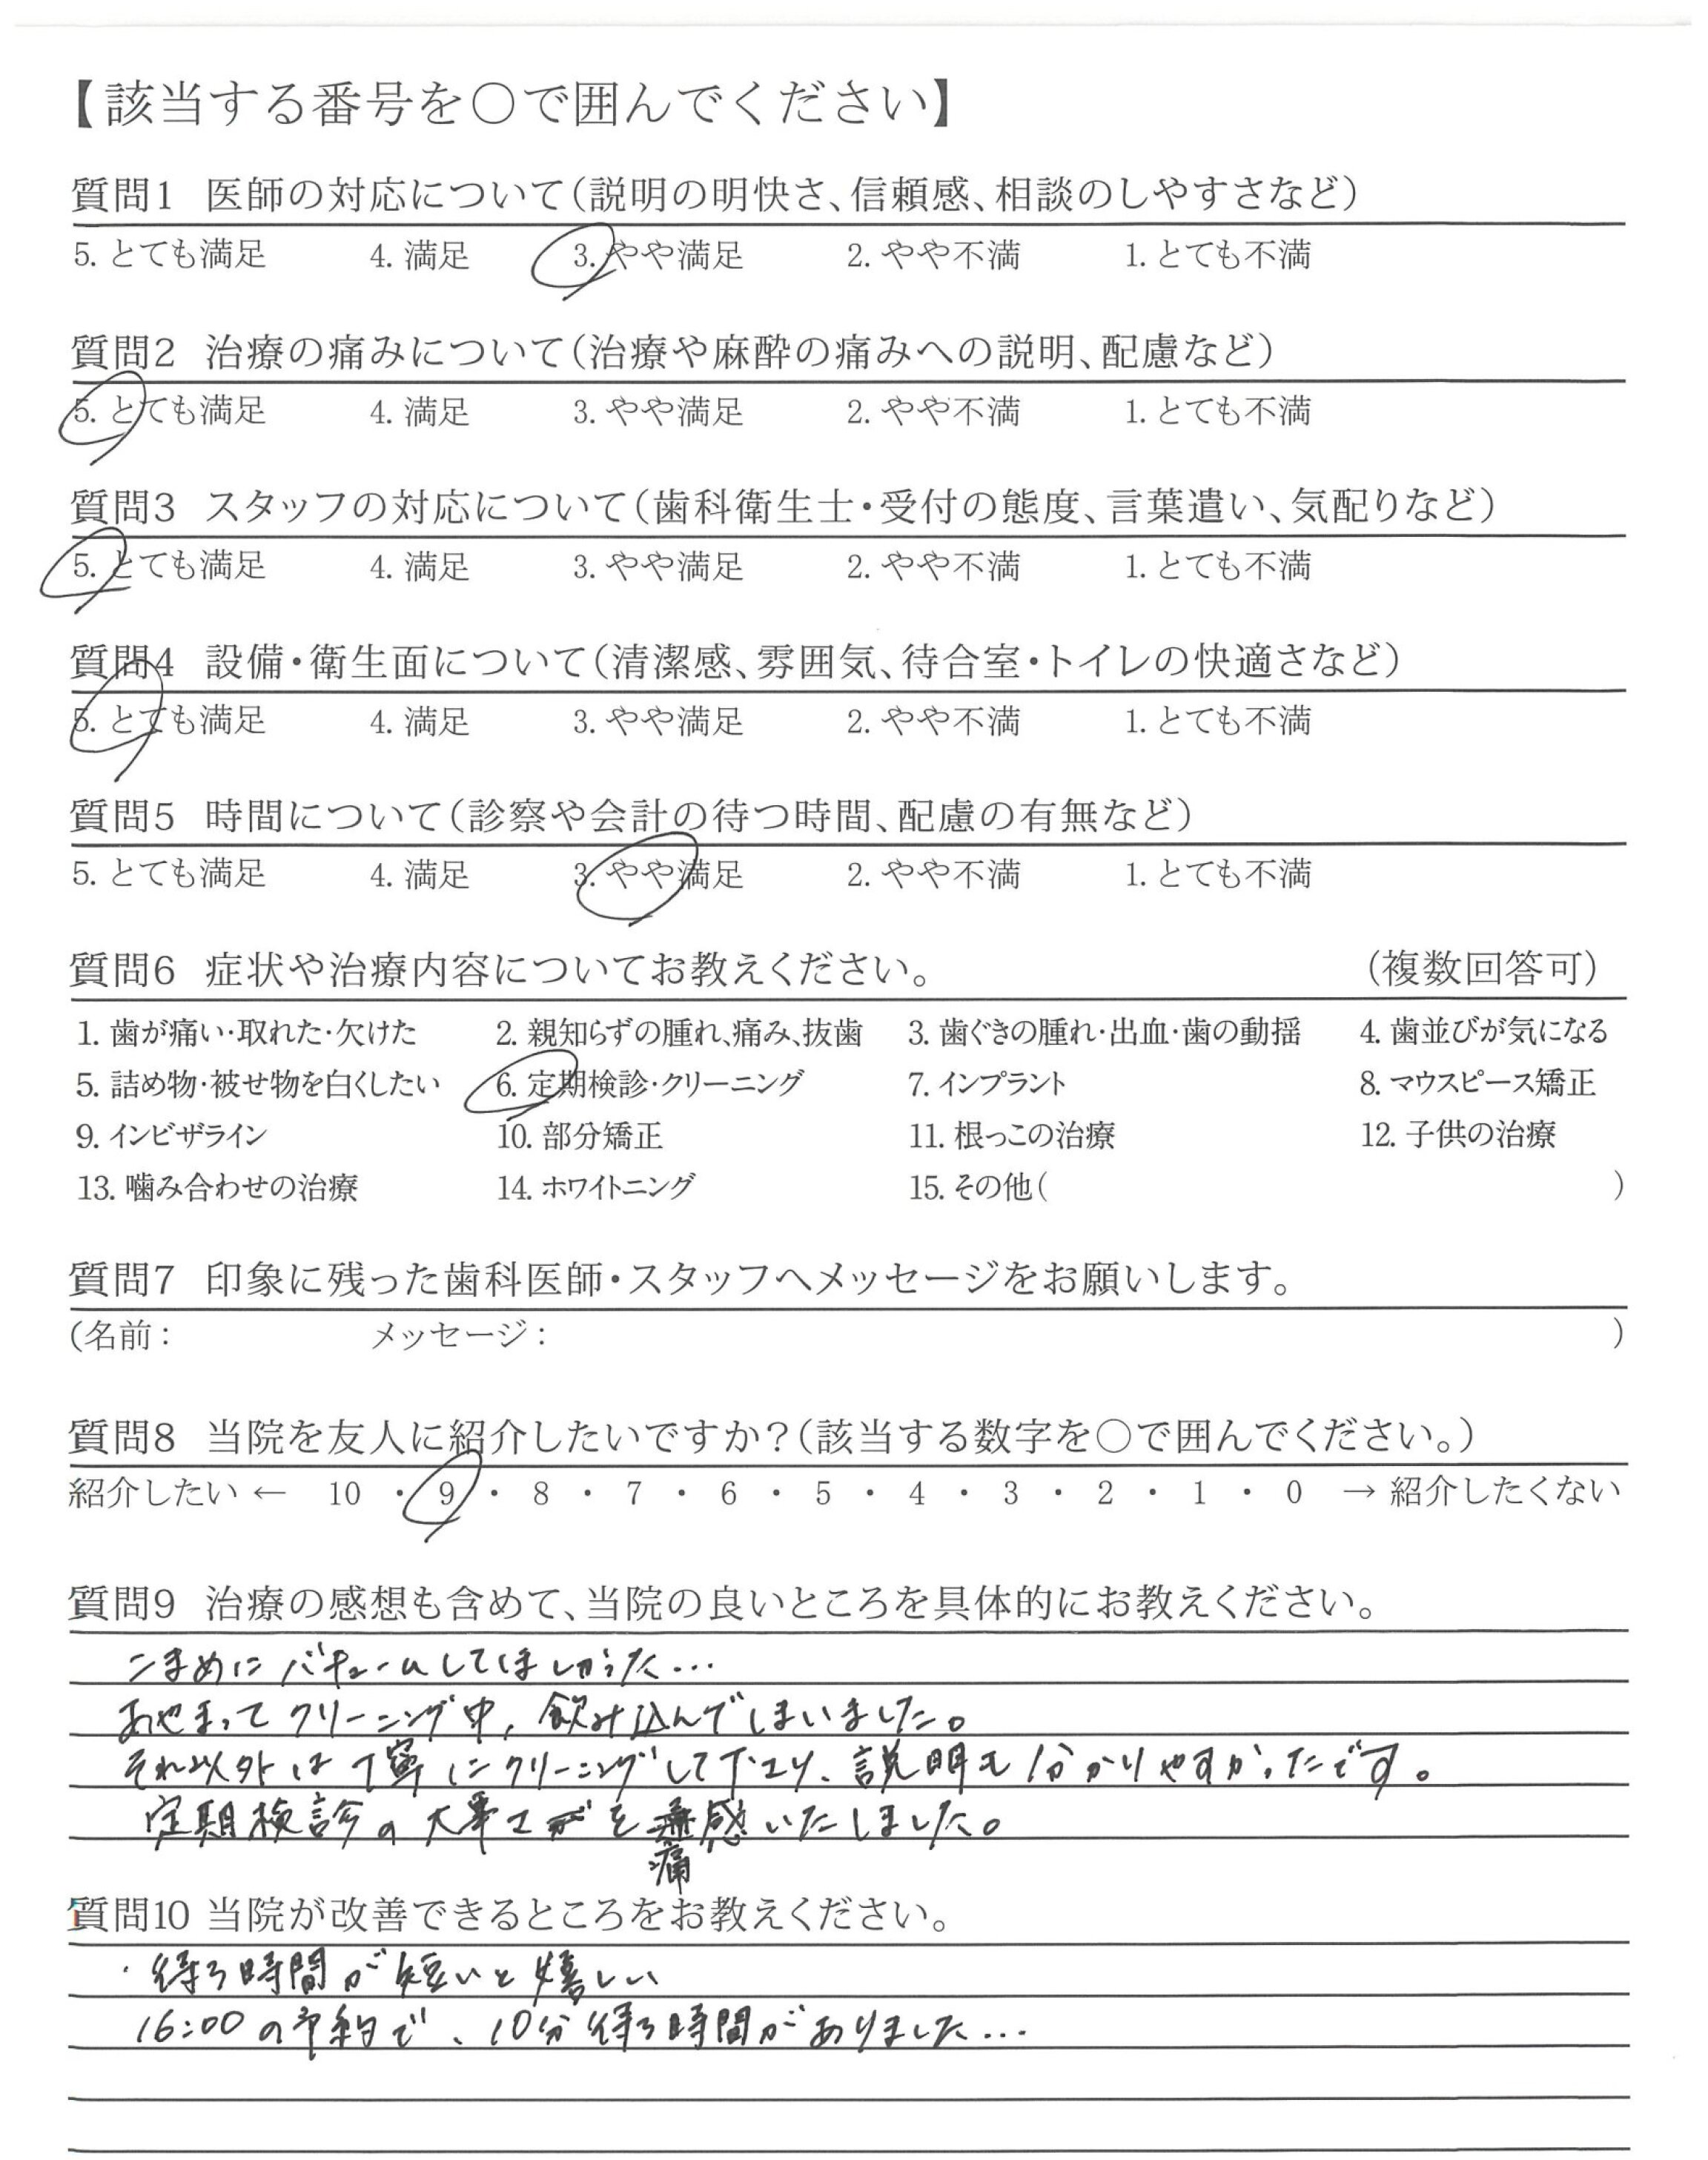 【該当する番号を○で囲んでください】
質問1 医師の対応について(説明の明快さ、信頼感、相談のしやすさなど)
5. とても満足 4. 満足 3. やや満足 2. やや不満 1. とても不満
質問2 治療の痛みについて(治療や麻酔の痛みへの説明、配慮など)
5. とても満足 4. 満足 3. やや満足 2. やや不満 1. とても不満
質問3 スタッフの対応について(歯科衛生士・受付の態度、言葉遣い、気配りなど)
5. とても満足 4. 満足 3. やや満足 2. やや不満 1. とても不満
質問4 設備・衛生面について(清潔感、雰囲気、待合室・トイレの快適さなど)
5. とても満足 4. 満足 3. やや満足 2. やや不満 1. とても不満
質問5 時間について(診察や会計の待つ時間、配慮の有無など)
5. とても満足 4. 満足 3. やや満足 2. やや不満 1. とても不満
質問6 症状や治療内容についてお教えください。 (複数回答可)
1. 歯が痛い・取れた・欠けた 2. 親知らずの腫れ、痛み、抜歯 3. 歯ぐきの腫れ・出血・歯の動揺 4. 歯並びが気になる
5. 詰め物・被せ物を白くしたい 6. 定期検診・クリーニング 7. インプラント 8. マウスピース矯正
9. インビザライン 10. 部分矯正 11. 根っこの治療 12. 子供の治療
13. 噛み合わせの治療 14. ホワイトニング 15. その他( )
質問7 印象に残った歯科医師・スタッフへメッセージをお願いします。
(名前: メッセージ: )
質問8 当院を友人に紹介したいですか?(該当する数字を○で囲んでください。)
紹介したい ← 10 ・ 9 ・ 8 ・ 7 ・ 6 ・ 5 ・ 4 ・ 3 ・ 2 ・ 1 ・ 0 → 紹介したくない
質問9 治療の感想も含めて、当院の良いところを具体的にお教えください。
こまめにバキュームしてほしかった…
あやまってクリーニング中、飲み込んでしまいました。
それ以外は丁寧にクリーニングして下さり、説明も分かりやすかったです。
定期検診の大事さを痛感いたしました。
質問10 当院が改善できるところをお教えください。
・待つ時間が短いと嬉しい
16:00の予約で、10分待つ時間がありました…